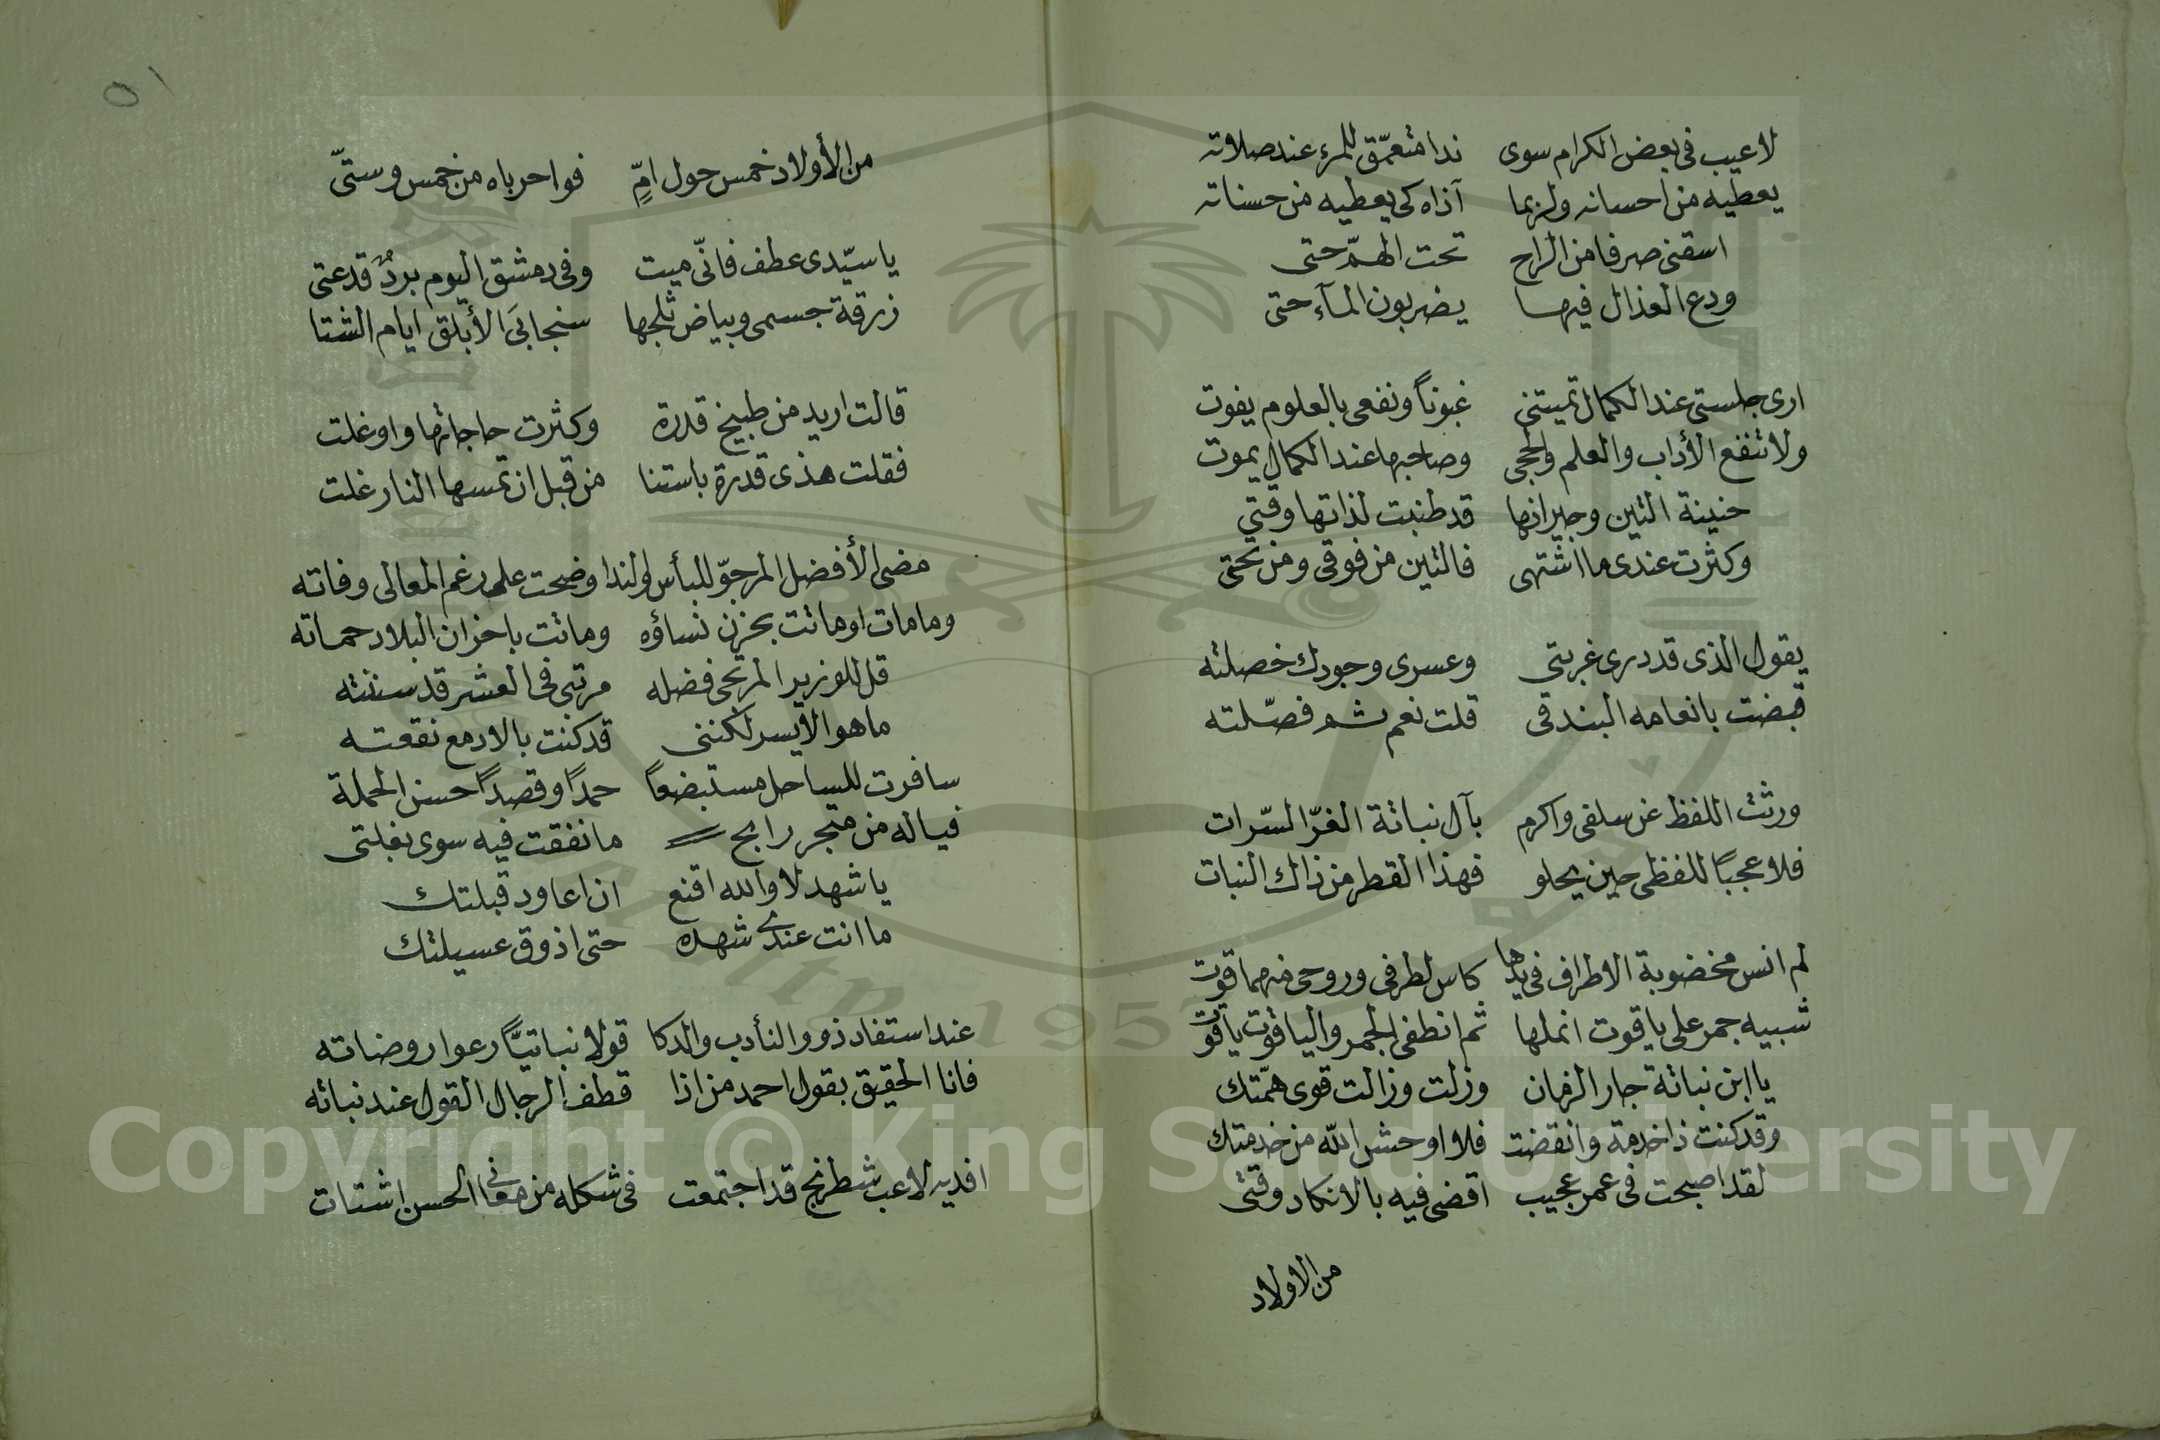 لا عيب في بعض الكرام سوى ندا متعمّق للمرء عند صلاته
يعطيه من احسانه ولربما آذاه كي يعطيه من حسناته
اسقني صرفا من الراح تحت الهمّ حتى
ودع العذال فيها يضربون المآء حتى
ارى جلستي عند الكمال تميتني غبونًا ونفعى بالعلوم يفوت
ولا تنفع الأداب والعلم والحجى وصاحبها عند الكمال يموت
حنينة التين وجيرانها قد طنبت لذاتها وقتي
وكثرت عندى ما اشتهى فالتين من فوقى ومن تحتى
يقول الذى قد درى غربتي وعسرى وجودك خصلته
قبضت بانعامه البندقى قلت نعم ثم فصّلته
ورثت اللفظ عن سلفى واكرم بآل نباتة الغرّ السّرات
فلا عجبًا للفظى حين يحلو فهذا القطر من ذاك النبات
لم انس مخضوبة الاطراف في يدها كاس لطرفى وروحى منهما قوت
شبيه جمر على ياقوت انملها ثم انطفى الجمر والياقوت ياقوت
يا ابن نباتة جار الزمان وزلت وزالت قوى همّتك
وقد كنت ذا خدمة وانقضت فلا اوحش الله من خدمتك
لقد اصبحت في عمر عجيب اقضى فيه بالانكاد وقتى
من الاولاد
٥١
من الأولاد خمس حول امٍّ فواحرباه من خمس وستّى
يا سيّدى عطف فانّى ميت وفي دمشق اليوم بردٌ قد عتى
زرقة جسمى وبياض ثلجها سنجابيَ الأبلق ايام الشتا
قالت اريد من طبيخ قدرة وكثرت حاجاتها واوغلت
فقلت هذى قدرة باستنا من قبل ان تمسها النار غلت
مضى الأفضل المرجوّ للبأس والندا وضحت على رغم المعالى وفاته
وما مات او ماتت بحزن نساؤه وماتت باحزان البلاد حماته
قل للوزير المرتجى فضله مرتبى في العشر قد سننته
ما هو الا يسر لكننى قد كنت بالادمع نقعته
سافرت للساحل مستبضعًا حمدًا وقصدًا حسن الجملة
فياله من متجر رابح ما نفقت فيه سوى بغلتى
يا شهد لا والله اقنع ان اعاود قبلتك
ما انت عندى شهده حتى اذوق عسيلتك
عند استفاد ذوو التأدب والدكا قولا نباتيًّا رعوا روضاته
فانا الحقيق بقول احمد من اذا قطف الرجال القول عند نباته
افديه لاعب شطرنج قد اجتمعت في شكله من معاني الحسن اشتات